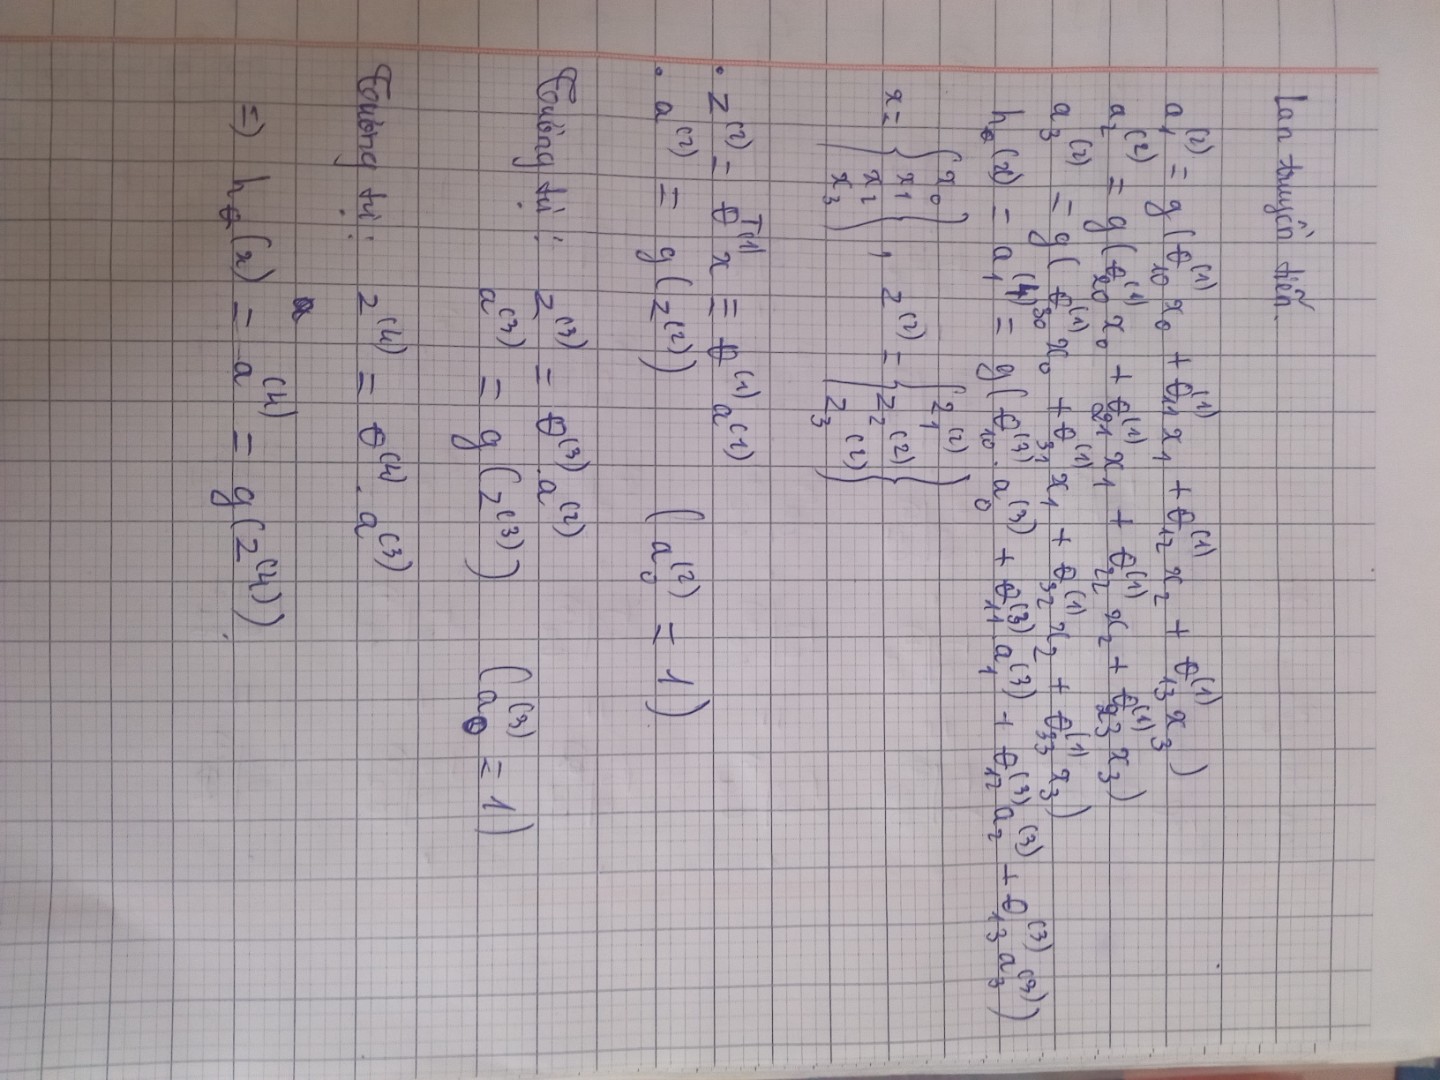 Lan truyền tiễn.
a₁⁽²⁾ = g(θ₁₀⁽¹⁾x₀ + θ₁₁⁽¹⁾x₁ + θ₁₂⁽¹⁾x₂ + θ₁₃⁽¹⁾x₃)
a₂⁽²⁾ = g(θ₂₀⁽¹⁾x₀ + θ₂₁⁽¹⁾x₁ + θ₂₂⁽¹⁾x₂ + θ₂₃⁽¹⁾x₃)
a₃⁽²⁾ = g(θ₃₀⁽¹⁾x₀ + θ₃₁⁽¹⁾x₁ + θ₃₂⁽¹⁾x₂ + θ₃₃⁽¹⁾x₃)
h_θ(x) = a₁⁽⁴⁾ = g(θ₁₀⁽³⁾.a₀⁽³⁾ + θ₁₁⁽³⁾a₁⁽³⁾ + θ₁₂⁽³⁾a₂⁽³⁾ + θ₁₃⁽³⁾a₃⁽³⁾)
x = {x₀ x₁ x₂ x₃}, z⁽²⁾ = {z₁⁽²⁾ z₂⁽²⁾ z₃⁽²⁾}
• z⁽²⁾ = θᵀ⁽¹⁾x ≡ θ⁽¹⁾a⁽¹⁾
• a⁽²⁾ = g(z⁽²⁾) (a₀⁽²⁾ = 1).
Tương tự: z⁽³⁾ = θ⁽³⁾.a⁽²⁾
a⁽³⁾ = g(z⁽³⁾) (a₀⁽³⁾ = 1)
Tương tự: z⁽⁴⁾ = θ⁽⁴⁾.a⁽³⁾
=> h_θ(x) = a⁽⁴⁾ = g(z⁽⁴⁾).